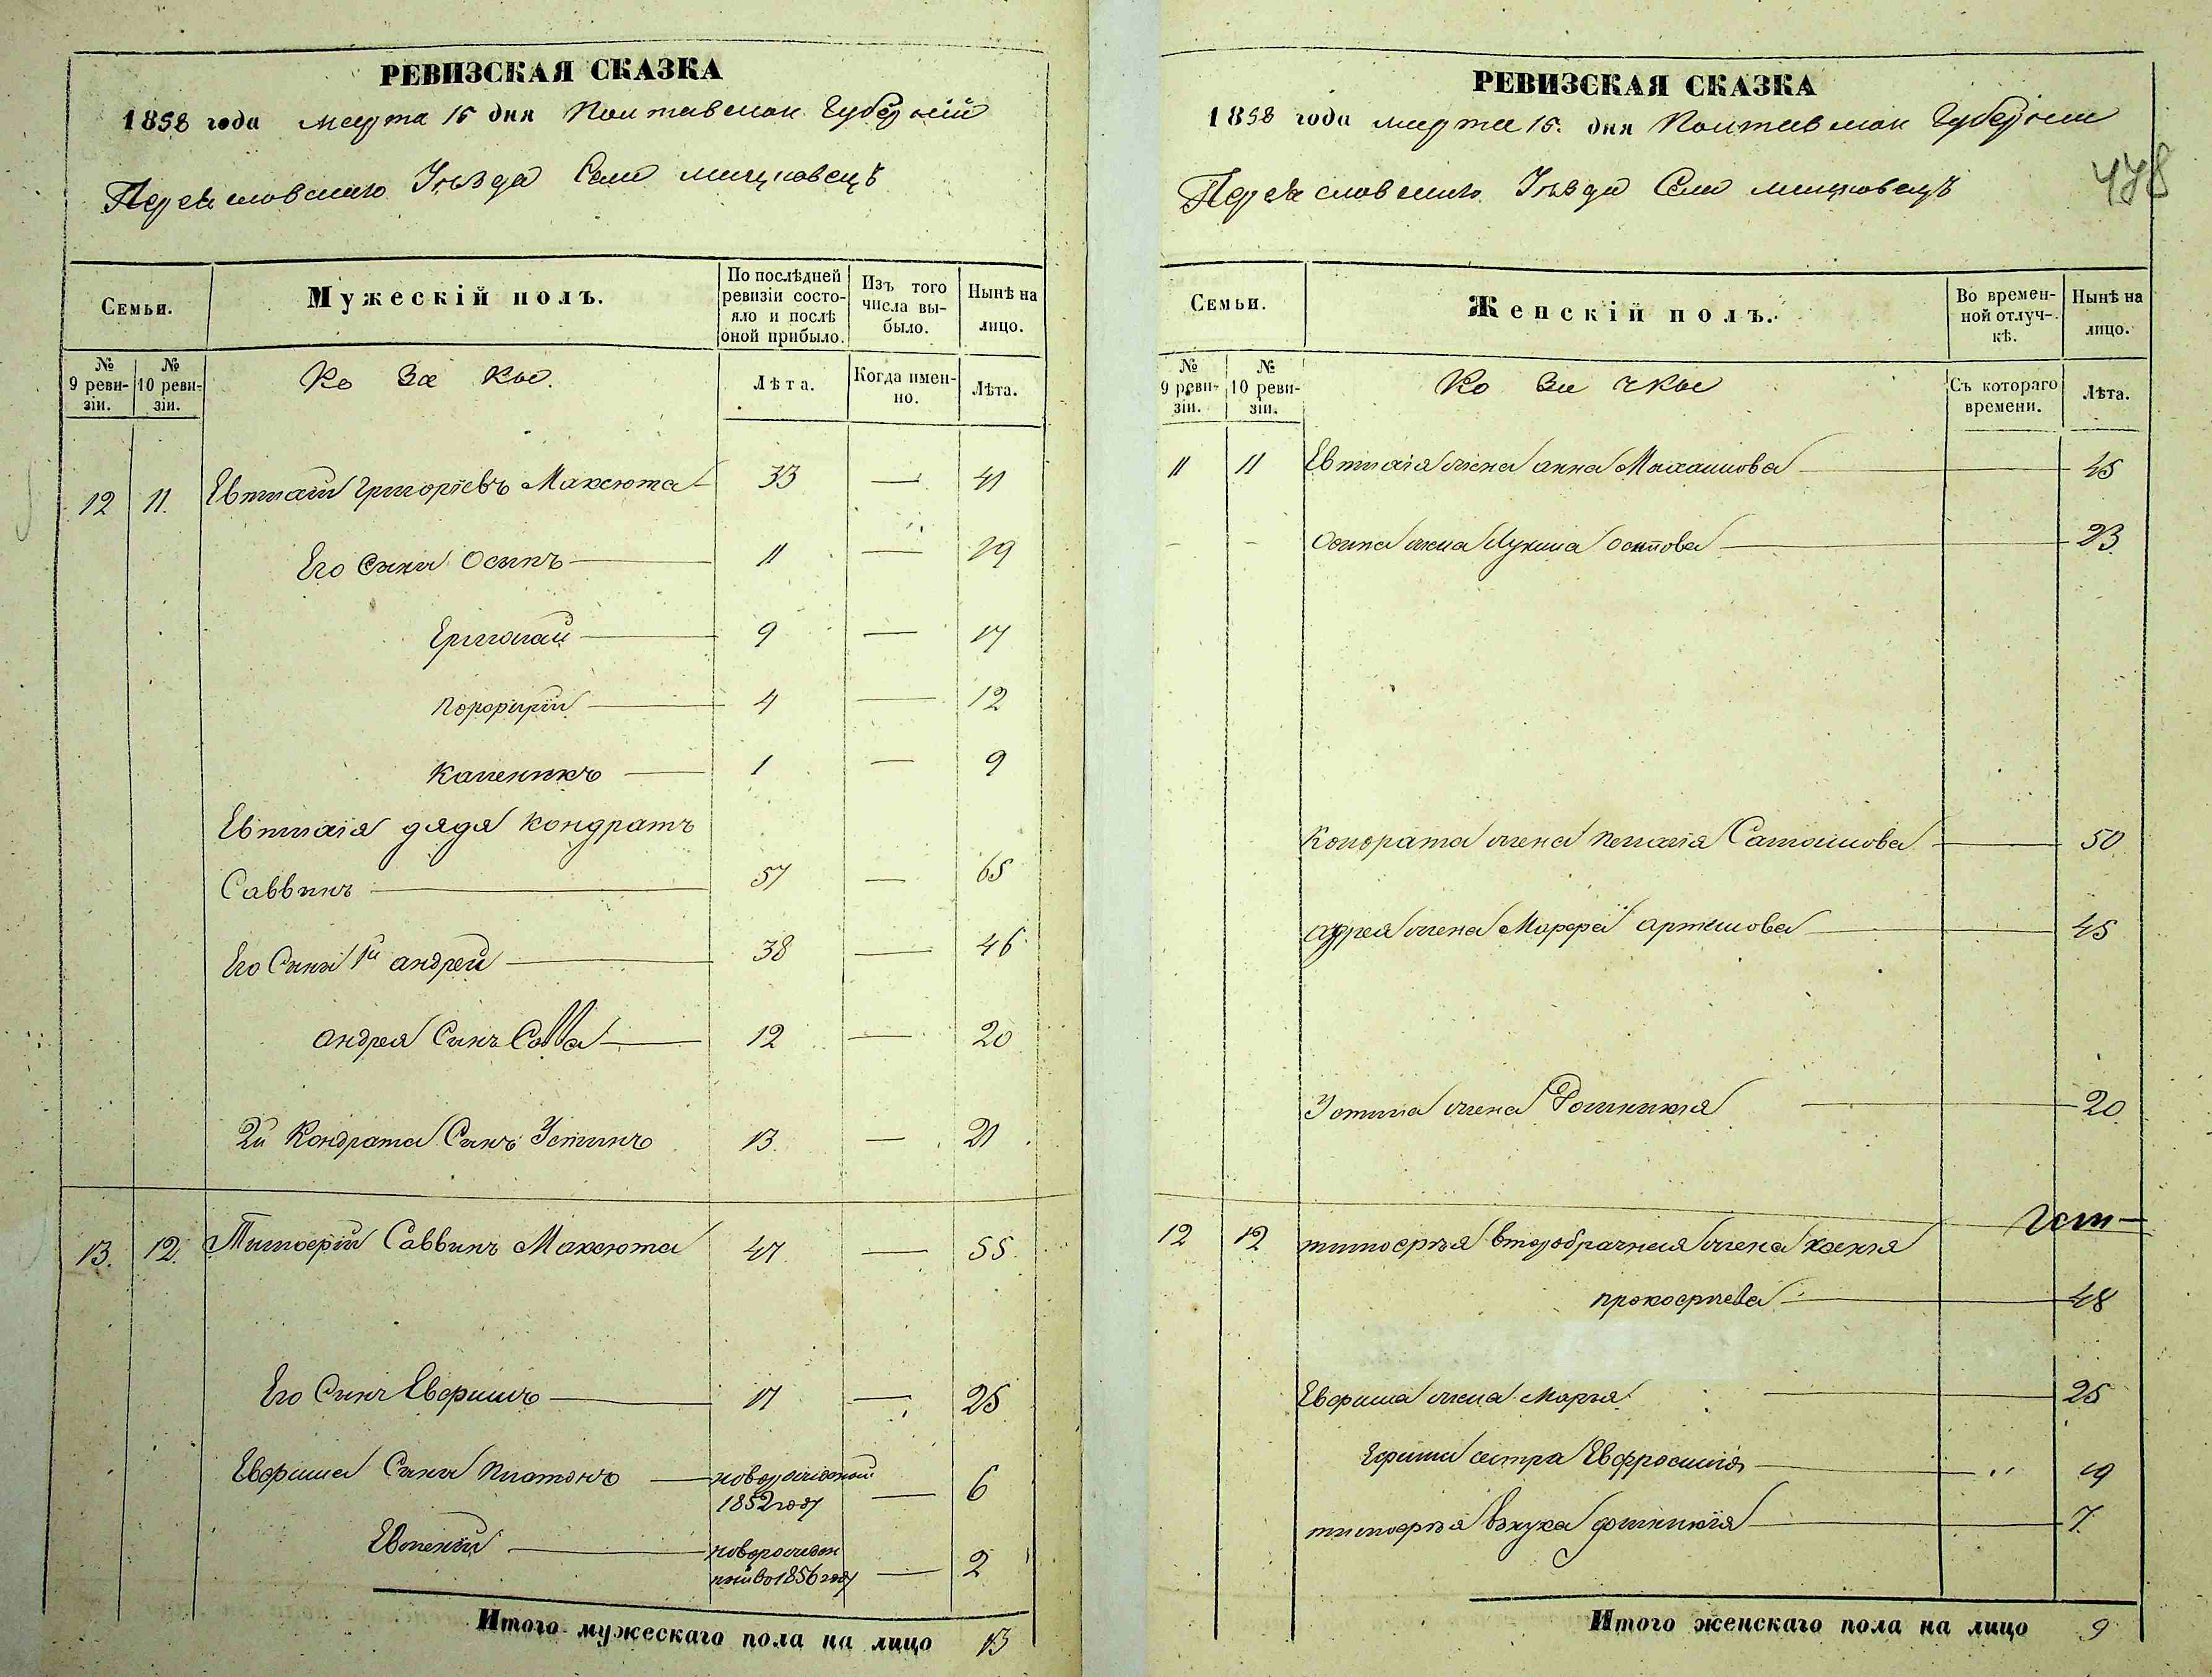 РЕВИЗСКАЯ СКАЗКА
1858 года марта 15 дня Полтавской Губерніи
Переяславского Уѣзда Села
Семьи.
Мужескій полъ.
По послѣдней ревизіи состояло и послѣ оной прибыло.
Изъ того числа выбыло.
Нынѣ на лицо.
№ 9 ревизіи.
№ 10 ревизіи.
Ко за кы.
Лѣта.
Когда именно.
Лѣта.
12 11. Евтихій Григоріевъ Максюта 33 — 41
Его Сыны Осипъ — 11 — 19
Григорій — 9 — 17
Порфирій — 4 — 12
Каленикъ — 1 — 9
Евтихія дядя Кондратъ
Саввинъ — 57 — 65
Его Сыны 1й андрей — 38 — 46
андрея Сынъ Савва — 12 — 20
2й Кондрата Сынъ Устинъ 13 — 21
13. 12. Тимофей Саввинъ Максюта 47 — 55
Его Сынъ Евфимъ — 17 — 25
Евфима Сыны Платонъ — новорожденный
1852 году — 6
Евгеній — новорожден
ный во 1856 году — 2
Итого мужескаго пола на лицо 13
РЕВИЗСКАЯ СКАЗКА
1858 года марта 15. дня Полтавской Губерніи
Переяславского Уѣзда Села
478
Семьи.
Женскій полъ.
Во временной отлучкѣ.
Нынѣ на лицо.
№ 9 ревизіи.
№ 10 ревизіи.
Ко за чкы
Съ котораго времени.
Лѣта.
11 11 Евтихія жена анна — 45
Осипа жена — 23
Кондрата жена — 50
андрея жена Марфа — 45
Устина жена — 20
12 12 тимофея второбрачная жена
прокофьева — 48
Евфима жена Марья — 25
Ефима сестра Евфросинія — " 19
тимофея внука — 7
Итого женскаго пола на лицо 9